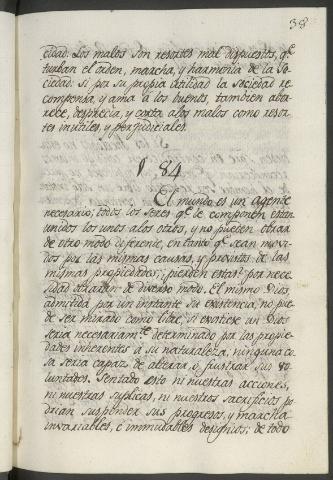 38
ciedad. Los malos son resortes mal dispuestos, q.e
turban el orden, marcha, y harmonia de la So-
ciedad. Si por su propia utilidad la sociedad re-
compensa, y ama a los buenos, tambien abor-
rece, desprecia, y corta a los malos como resor-
tes inutiles, y perjudiciales.
§ 84
El mundo es un agente
necesario; todos los seres q.e le componen estan
unidos los unos a los otros, y no pueden obrar
de otro modo diferente, en tanto q.e sean movi-
dos por las mismas causas, y provistos de las
mismas propiedades; ¿pierden estas? por nece-
sidad obraran de diverso modo. El mismo Dios,
admitida por un instante su existencia, no pue-
de ser mirado como libre; si existiese un Dios
seria necesariam.te determinado por las propie-
dades inherentes à su naturaleza, ninguna co-
sa seria capaz de alterar, ó frustrar sus vo-
luntades. Sentado esto ni nuestras acciones,
ni nuestras suplicas, ni nuestros sacrificios po-
drian suspender sus progresos, y marcha
invariables, é inmutables designios; de todo